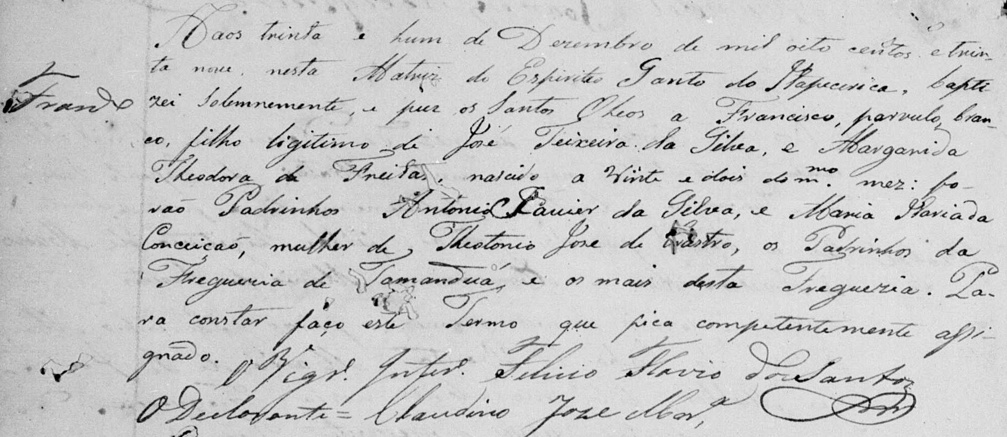 Aaos trinta e hum de Dezembro de mil oito centos e trin-
ta nove nesta Matriz do Espirito Santo do Itapecerica, bapti
Franco
zei Solemnemente, e puz os Santos Oleos a Francisco, parvulo, bran-
co, filho ligitimo de José Teixeira da Silva, e Margarida
Theodora de Freitas, nascido a vinte e dois do m.mo mez: fo-
rão Padrinhos Antonio Xavier da Silva, e Maria da
Conceicaó, mulher de Theotonio Jose de Castro, os Padrinhos da
Freguezia de Tamanduá, e os mais desta Freguezia. Pa-
ra constar faço este Termo que fica competentemente assi-
gnado. O Vigr.º Inter.º Felicio Flavio dos Santos
O Declarante = Claudino Joze